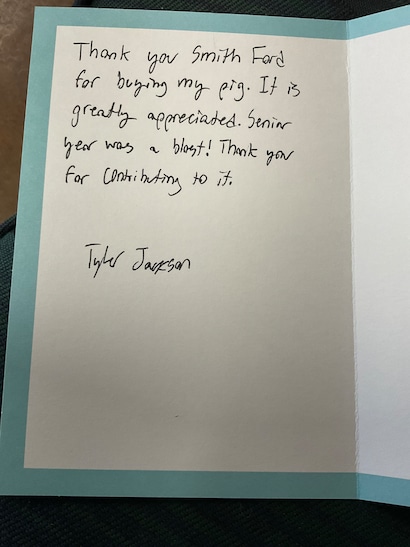 Thank you Smith Ford
for buying my pig. It is
greatly appreciated. Senior
year was a blast! Thank you
for contributing to it.
Tyler Jackson